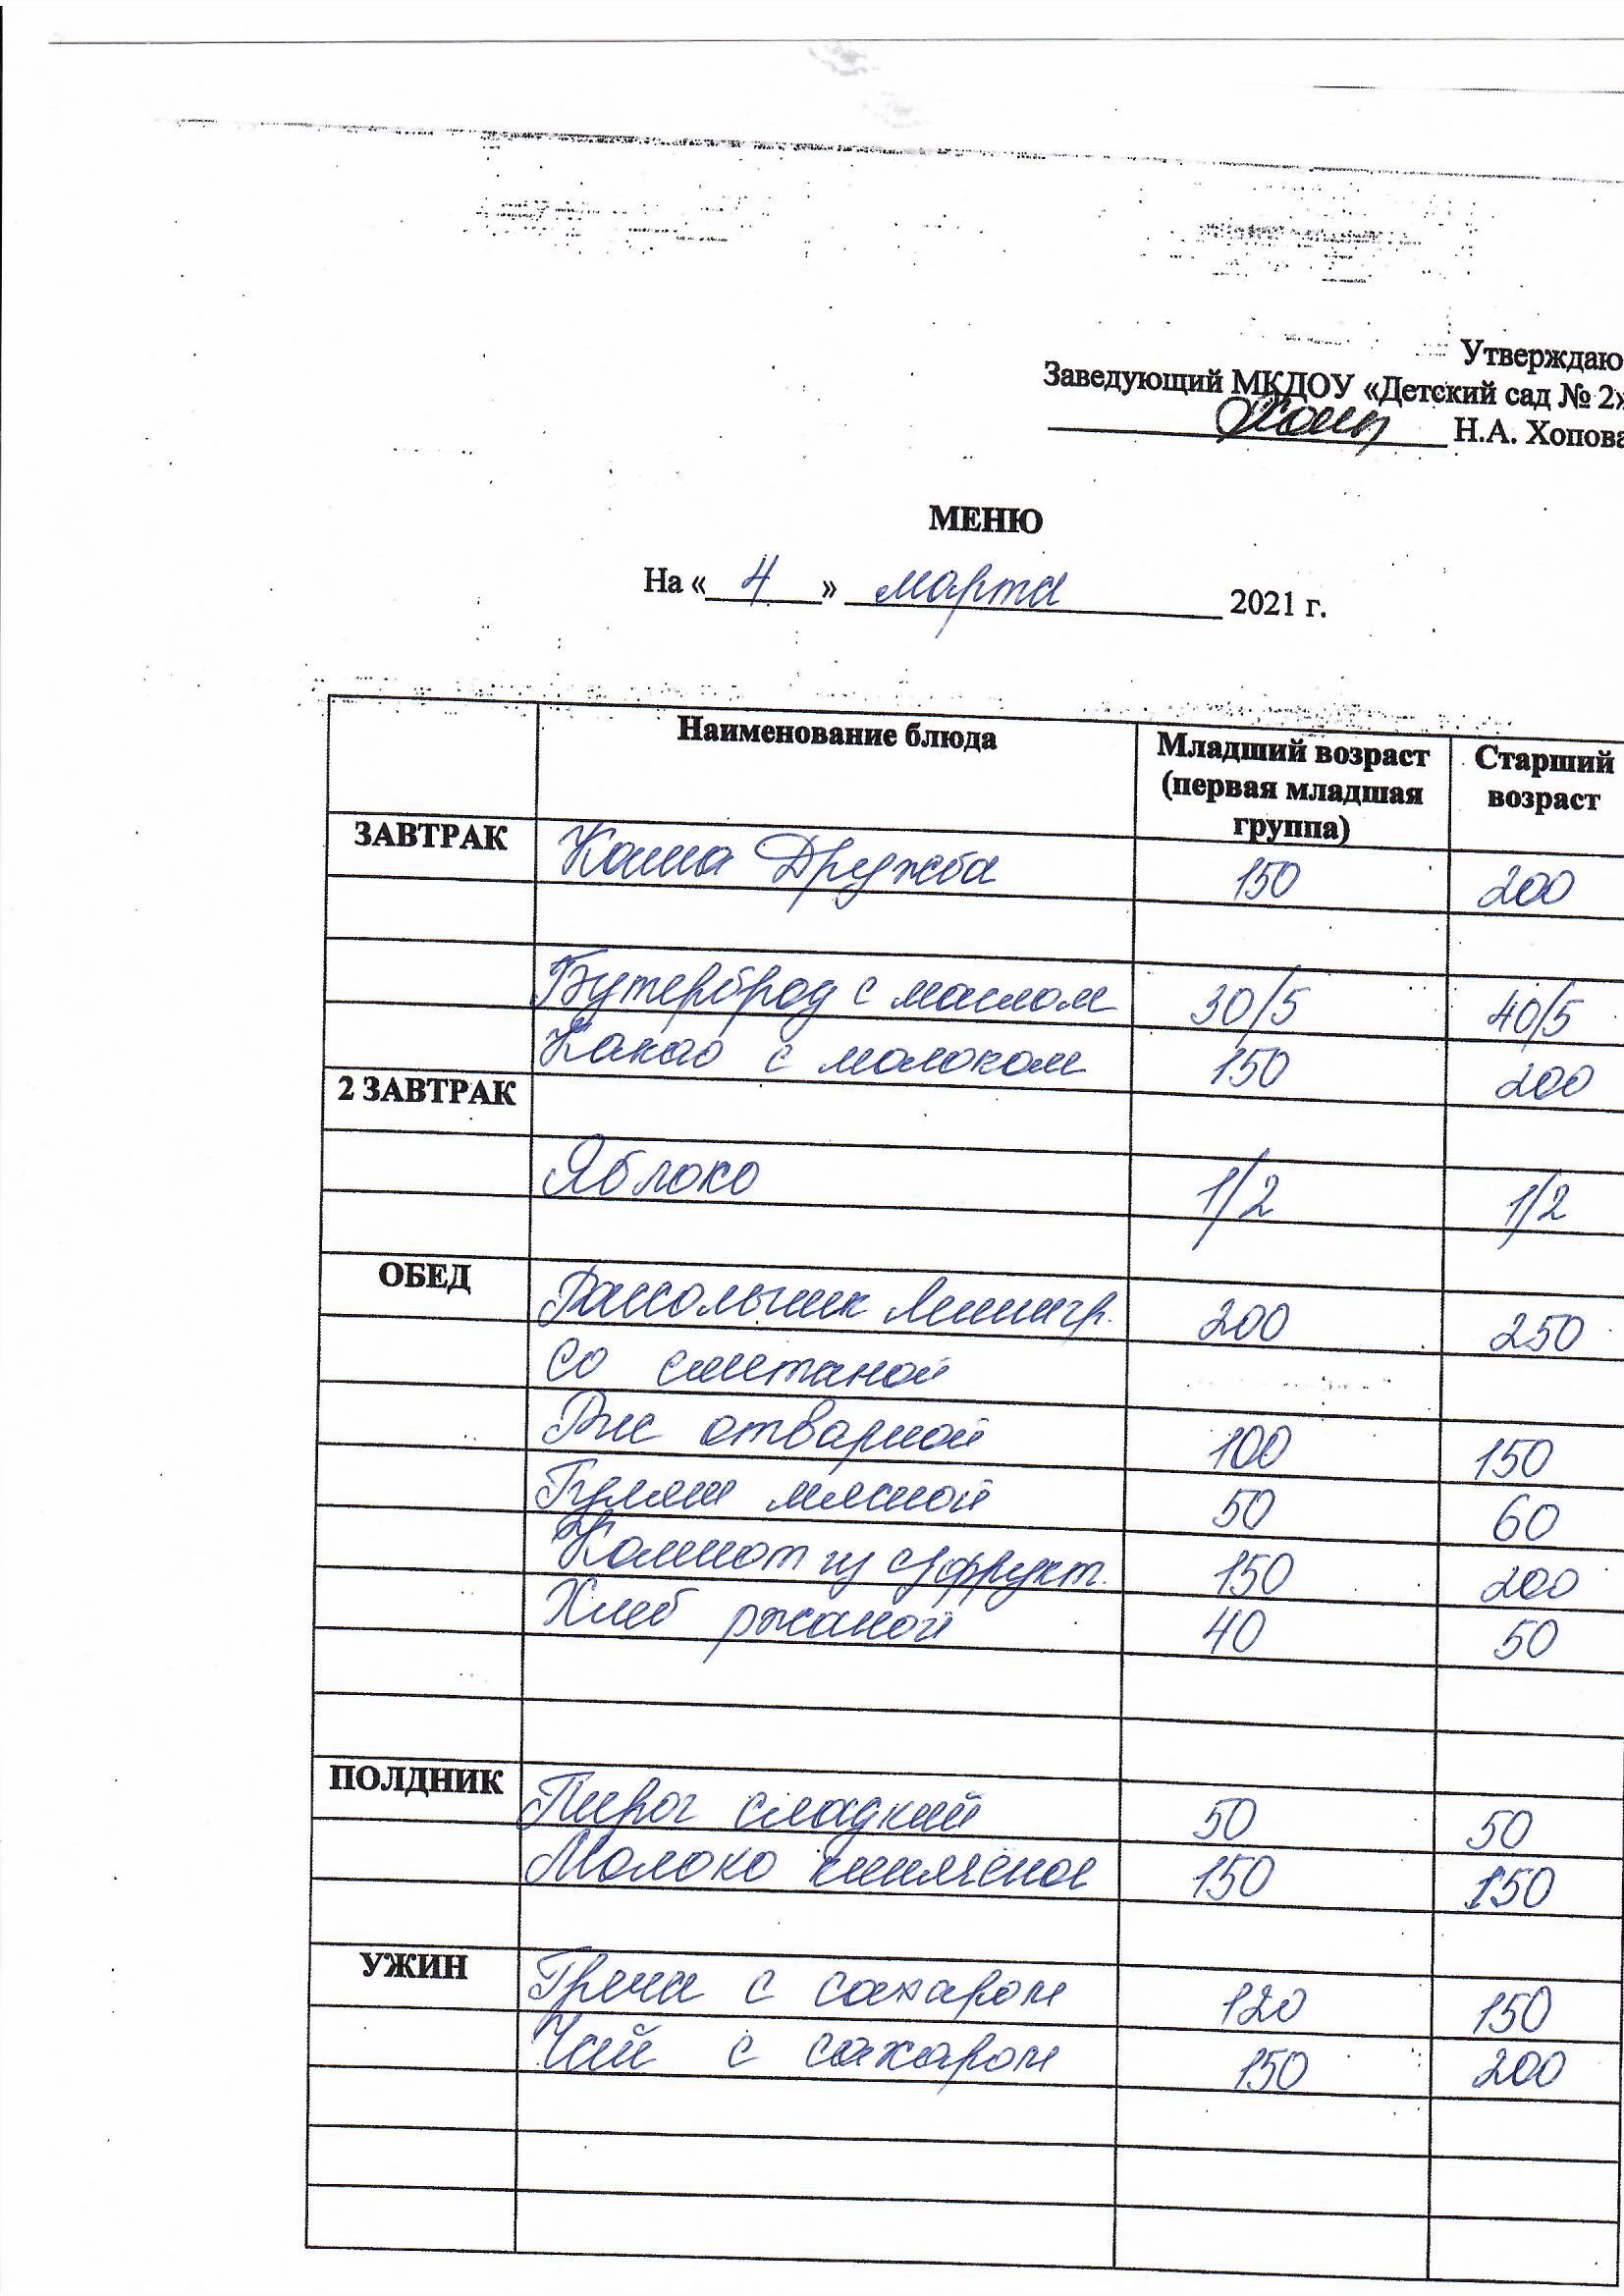 Утверждаю
Заведующий МКДОУ «Детский сад № 2»
Н.А. Хопова
МЕНЮ
На « 4 » марта 2021 г.
Наименование блюда Младший возраст (первая младшая группа) Старший возраст
ЗАВТРАК Каша Дружба 150 200
Бутерброд с маслом 30/5 40/5
Какао с молоком 150 200
2 ЗАВТРАК
Яблоко 1/2 1/2
ОБЕД Рассольник Ленингр. 200 250
со сметаной
Рис отварной 100 150
Гуляш мясной 50 60
Компот из с/фрукт. 150 200
Хлеб ржаной 40 50
ПОЛДНИК Пирог сладкий 50 50
Молоко кипяченое 150 150
УЖИН с сахаром 120 150
Чай с сахаром 150 200